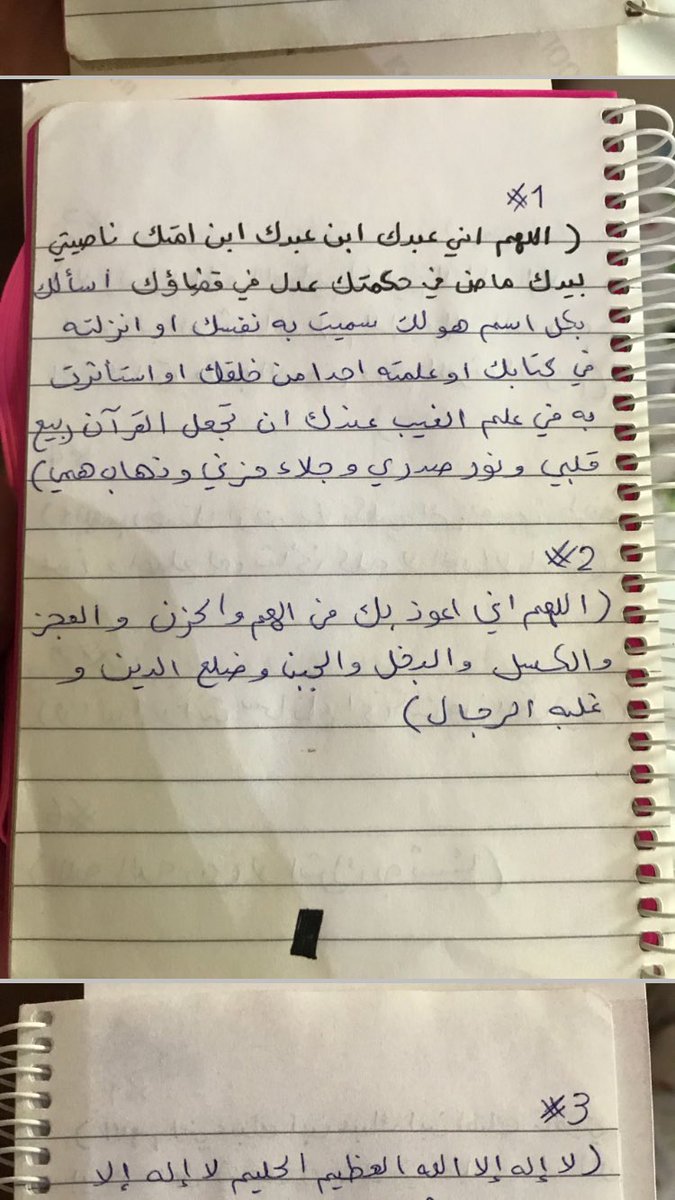 #1
( اللهم اني عبدك ابن عبدك ابن امتك ناصيتي
بيدك ماض في حكمتك عدل في قضاؤك أسألك
بكل اسم هو لك سميت به نفسك او انزلته
في كتابك او علمته احدا من خلقك او استأثرت
به في علم الغيب عندك ان تجعل القرآن ربيع
قلبي ونور صدري وجلاء حزني وذهاب همي)
#2
(اللهم اني اعوذ بك من الهم والحزن والعجز
والكسل والبخل والجبن وضلع الدين و
غلبه الرجال)
#3
(لا إله إلا الله العظيم الحليم لا إله إلا